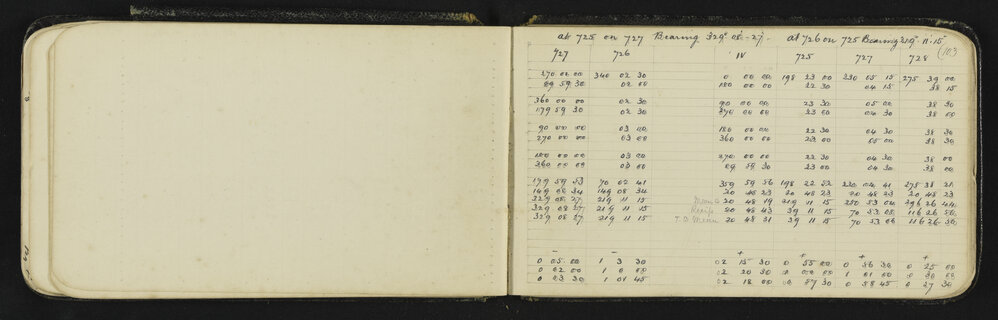 at 725 on 727 Bearing 329° 08'-27". at 726 on 725 Bearing 219° 11' 15
103
727 726 IV 725 727 728
270 00 00 340 02 30 0 00 00 198 23 00 230 05 15 275 39 00
89 59 30 02 00 180 00 00 22 30 04 15 38 15
360 00 00 02 30 90 00 00 23 30 05 00 38 30
179 59 30 02 30 270 00 00 23 00 04 30 38 00
90 00 00 03 00 180 00 00 22 30 04 30 38 30
270 00 00 03 00 360 00 00 23 00 05 00 38 30
180 00 00 03 00 270 00 00 22 30 04 30 38 00
360 00 00 03 00 89 59 30 23 00 04 30 38 00
179 59 53 70 02 41 359 59 56 198 22 52 230 04 41 275 38
149 08 34 149 08 34 20 48 23 20 48 23 20 48 23 20 48 23
329 08 27 219 11 15 Mean 20 48 19 219 11 15 250 53 04 296 26
329 08 27 219 11 15 Recip 20 48 43 39 11 15 70 53 08 116 26
329 08 27 219 11 15 T.O Mean 20 48 31 39 11 15 70 53 06 116 26
- - + + + +
0 05 00 1 3 30 02 15 30 0 55 00 0 56 30 0 25 00
0 02 00 1 0 00 02 20 30 1 01 00 0 30 00
0 03 30 1 01 45 02 18 00 57 30 0 58 45 0 27 30